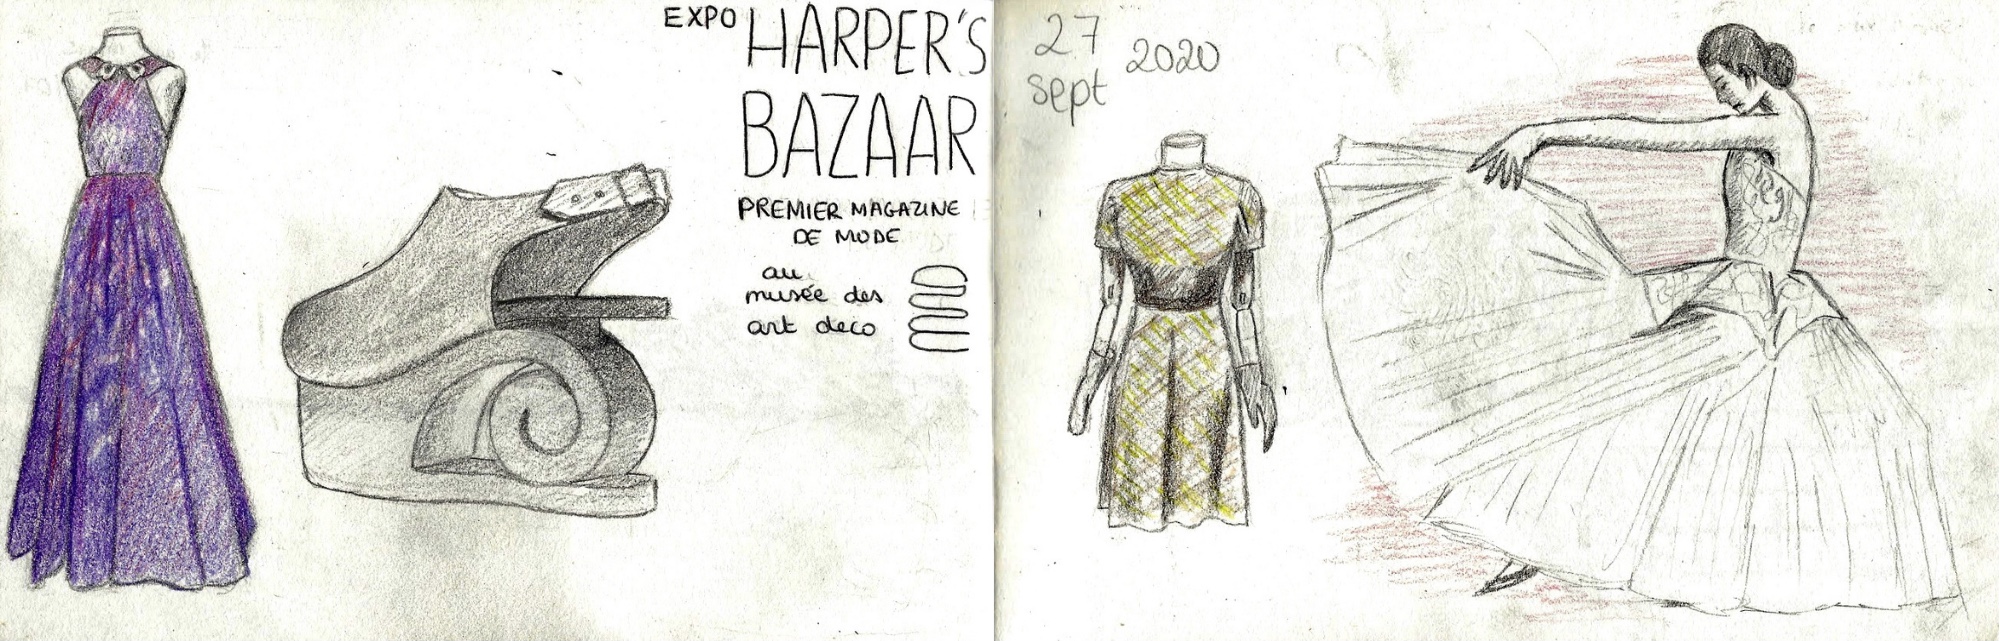 EXPO HARPER'S
BAZAAR
PREMIER MAGAZINE
DE MODE
au
musée des
art deco
27
sept 2020